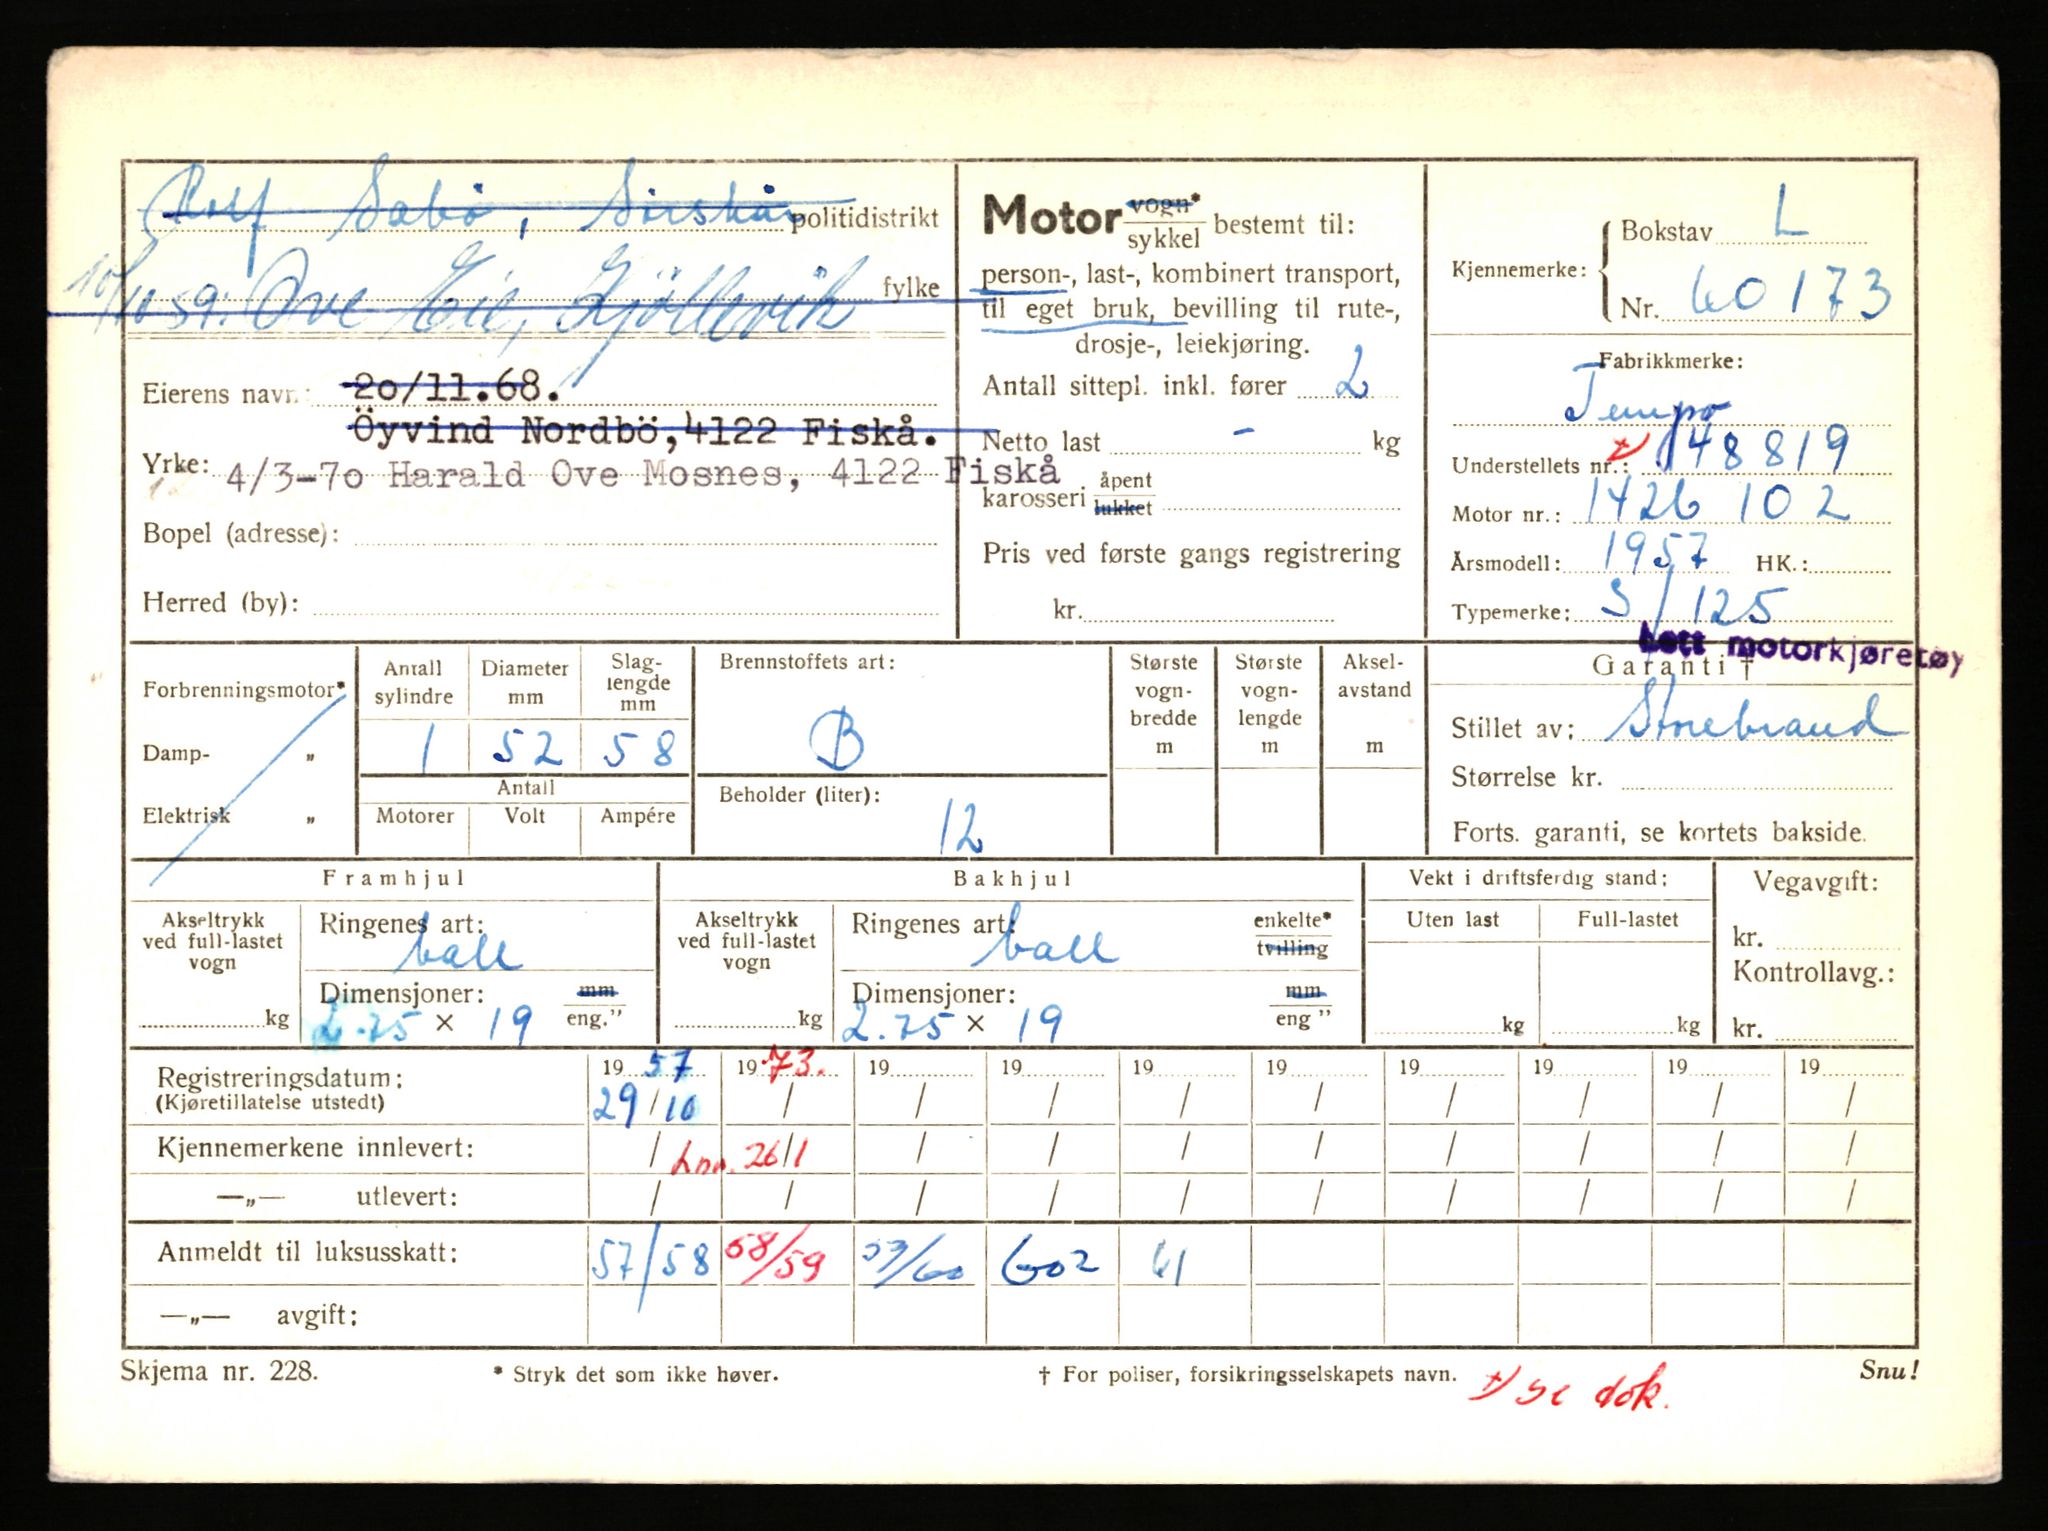 Rolf Sabö, Sirskår politidistrikt
10/10 59: Ove Eie, Gjöllevik fylke
Eierens navn: 20/11.68.
Öyvind Nordbö, 4122 Fiskå.
Yrke: 4/3-70 Harald Ove Mosnes, 4122 Fiskå
Bopel (adresse):
Herred (by):
Motor vogn* / sykkel bestemt til:
person-, last-, kombinert transport,
til eget bruk, bevilling til rute-,
drosje-, leiekjøring.
Antall sittepl. inkl. fører 2
Netto last - kg
karosseri åpent / lukket
Pris ved første gangs registrering
kr.
Kjennemerke: { Bokstav L
Nr. 60173
Fabrikkmerke:
Tempo
Understellets nr.: x) 148819
Motor nr.: 1426 102
Årsmodell: 1957 HK.:
Typemerke: S/125
Lett motorkjøretøy
Garanti †
Stillet av: Storebrand
Størrelse kr.
Forts. garanti, se kortets bakside.
Forbrenningsmotor*
Damp- „
Elektrisk „
Antall sylindre 1
Diameter mm 52
Slag-lengde mm 58
Antall
Motorer Volt Ampére
Brennstoffets art:
B
Beholder (liter):
12
Største vogn-bredde m
Største vogn-lengde m
Aksel-avstand m
Framhjul
Akseltrykk ved full-lastet vogn kg
Ringenes art: ball
Dimensjoner: mm / eng."
2.75 × 19
Bakhjul
Akseltrykk ved full-lastet vogn kg
Ringenes art: ball enkelte* / tvilling
Dimensjoner: mm / eng "
2.75 × 19
Vekt i driftsferdig stand:
Uten last Full-lastet
kg kg
Vegavgift:
kr.
Kontrollavg.:
kr.
Registreringsdatum: 1957 1973. 19 19 19 19 19 19 19 19
(Kjøretillatelse utstedt) 29/10 / / / / / / / / /
Kjennemerkene innlevert: / Inn. 26/1 / / / / / / / /
—„— utlevert: / / / / / / / / / /
Anmeldt til luksusskatt: 57/58 58/59 59/60 602 61
—„— avgift:
Skjema nr. 228. * Stryk det som ikke høver. † For poliser, forsikringsselskapets navn. x) se dok. Snu!